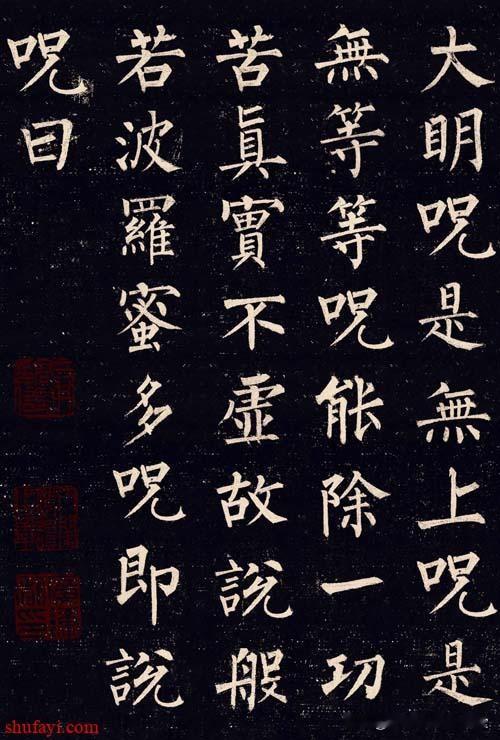 大明呪是無上呪是
無等等呪能除一切
苦真實不虛故說般
若波羅蜜多呪即說
呪曰
shufayi.com